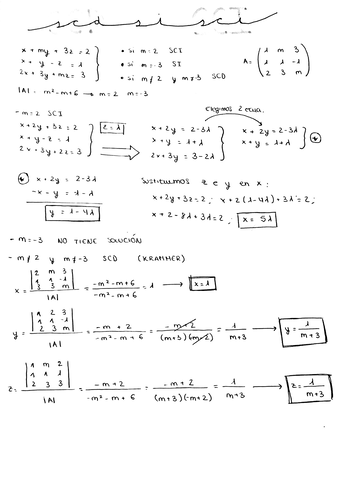 scd si sci
x + my + 3z = 2
x + y - z = 1
2x + 3y + mz = 3
• si m = 2 SCI
• si m = -3 SI
• si m ≠ 2 y m ≠ -3 SCD
A = ( 1 m 3
1 1 -1
2 3 m )
|A| = -m² - m + 6 → m = 2 m = -3
- m = 2 SCI
x + 2y + 3z = 2
x + y - z = 1
2x + 3y + 2z = 3
z = λ
x + 2y = 2 - 3λ
x + y = 1 + λ
2x + 3y = 3 - 2λ
elegimos 2 ecua.
x + 2y = 2 - 3λ
x + y = 1 + λ
x + 2y = 2 - 3λ
-x - y = -1 - λ
y = 1 - 4λ
Sustituimos z e y en x:
x + 2y + 3z = 2; x + 2(1 - 4λ) + 3λ = 2;
x + 2 - 8λ + 3λ = 2; x = 5λ
- m = -3 NO TIENE SOLUCIÓN
- m ≠ 2 y m ≠ -3 SCD (KRAMMER)
x = | 2 m 3
1 1 -1
3 3 m | / |A| = -m² - m + 6 / -m² - m + 6 = 1 → x = 1
y = | 1 2 3
1 1 -1
2 3 m | / |A| = -m + 2 / -m² - m + 6 = -m + 2 / (m+3)(-m+2) = 1 / m+3 → y = 1 / m+3
z = | 1 m 2
1 1 1
2 3 3 | / |A| = -m + 2 / -m² - m + 6 = -m + 2 / (m+3)(-m+2) = 1 / m+3 → z = 1 / m+3